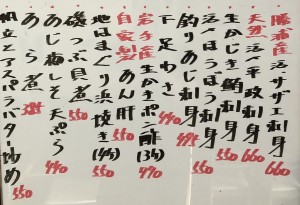 勝浦産 活サザエ刺身 660
天然 活〆平政刺身 660
生かじき鮪刺身 550
活〆ほうぼう刺身 550
釣りあじ刺身 495
下足わさ 440
岩手産 生かきポン酢(3ヶ) 490
自家製 あん肝 550
地はまぐり浜焼き(4ヶ) 550
磯つぶ貝煮 550
あら梅しそ天ぷら 440
あら煮
帆立とアスパラバター炒め 550